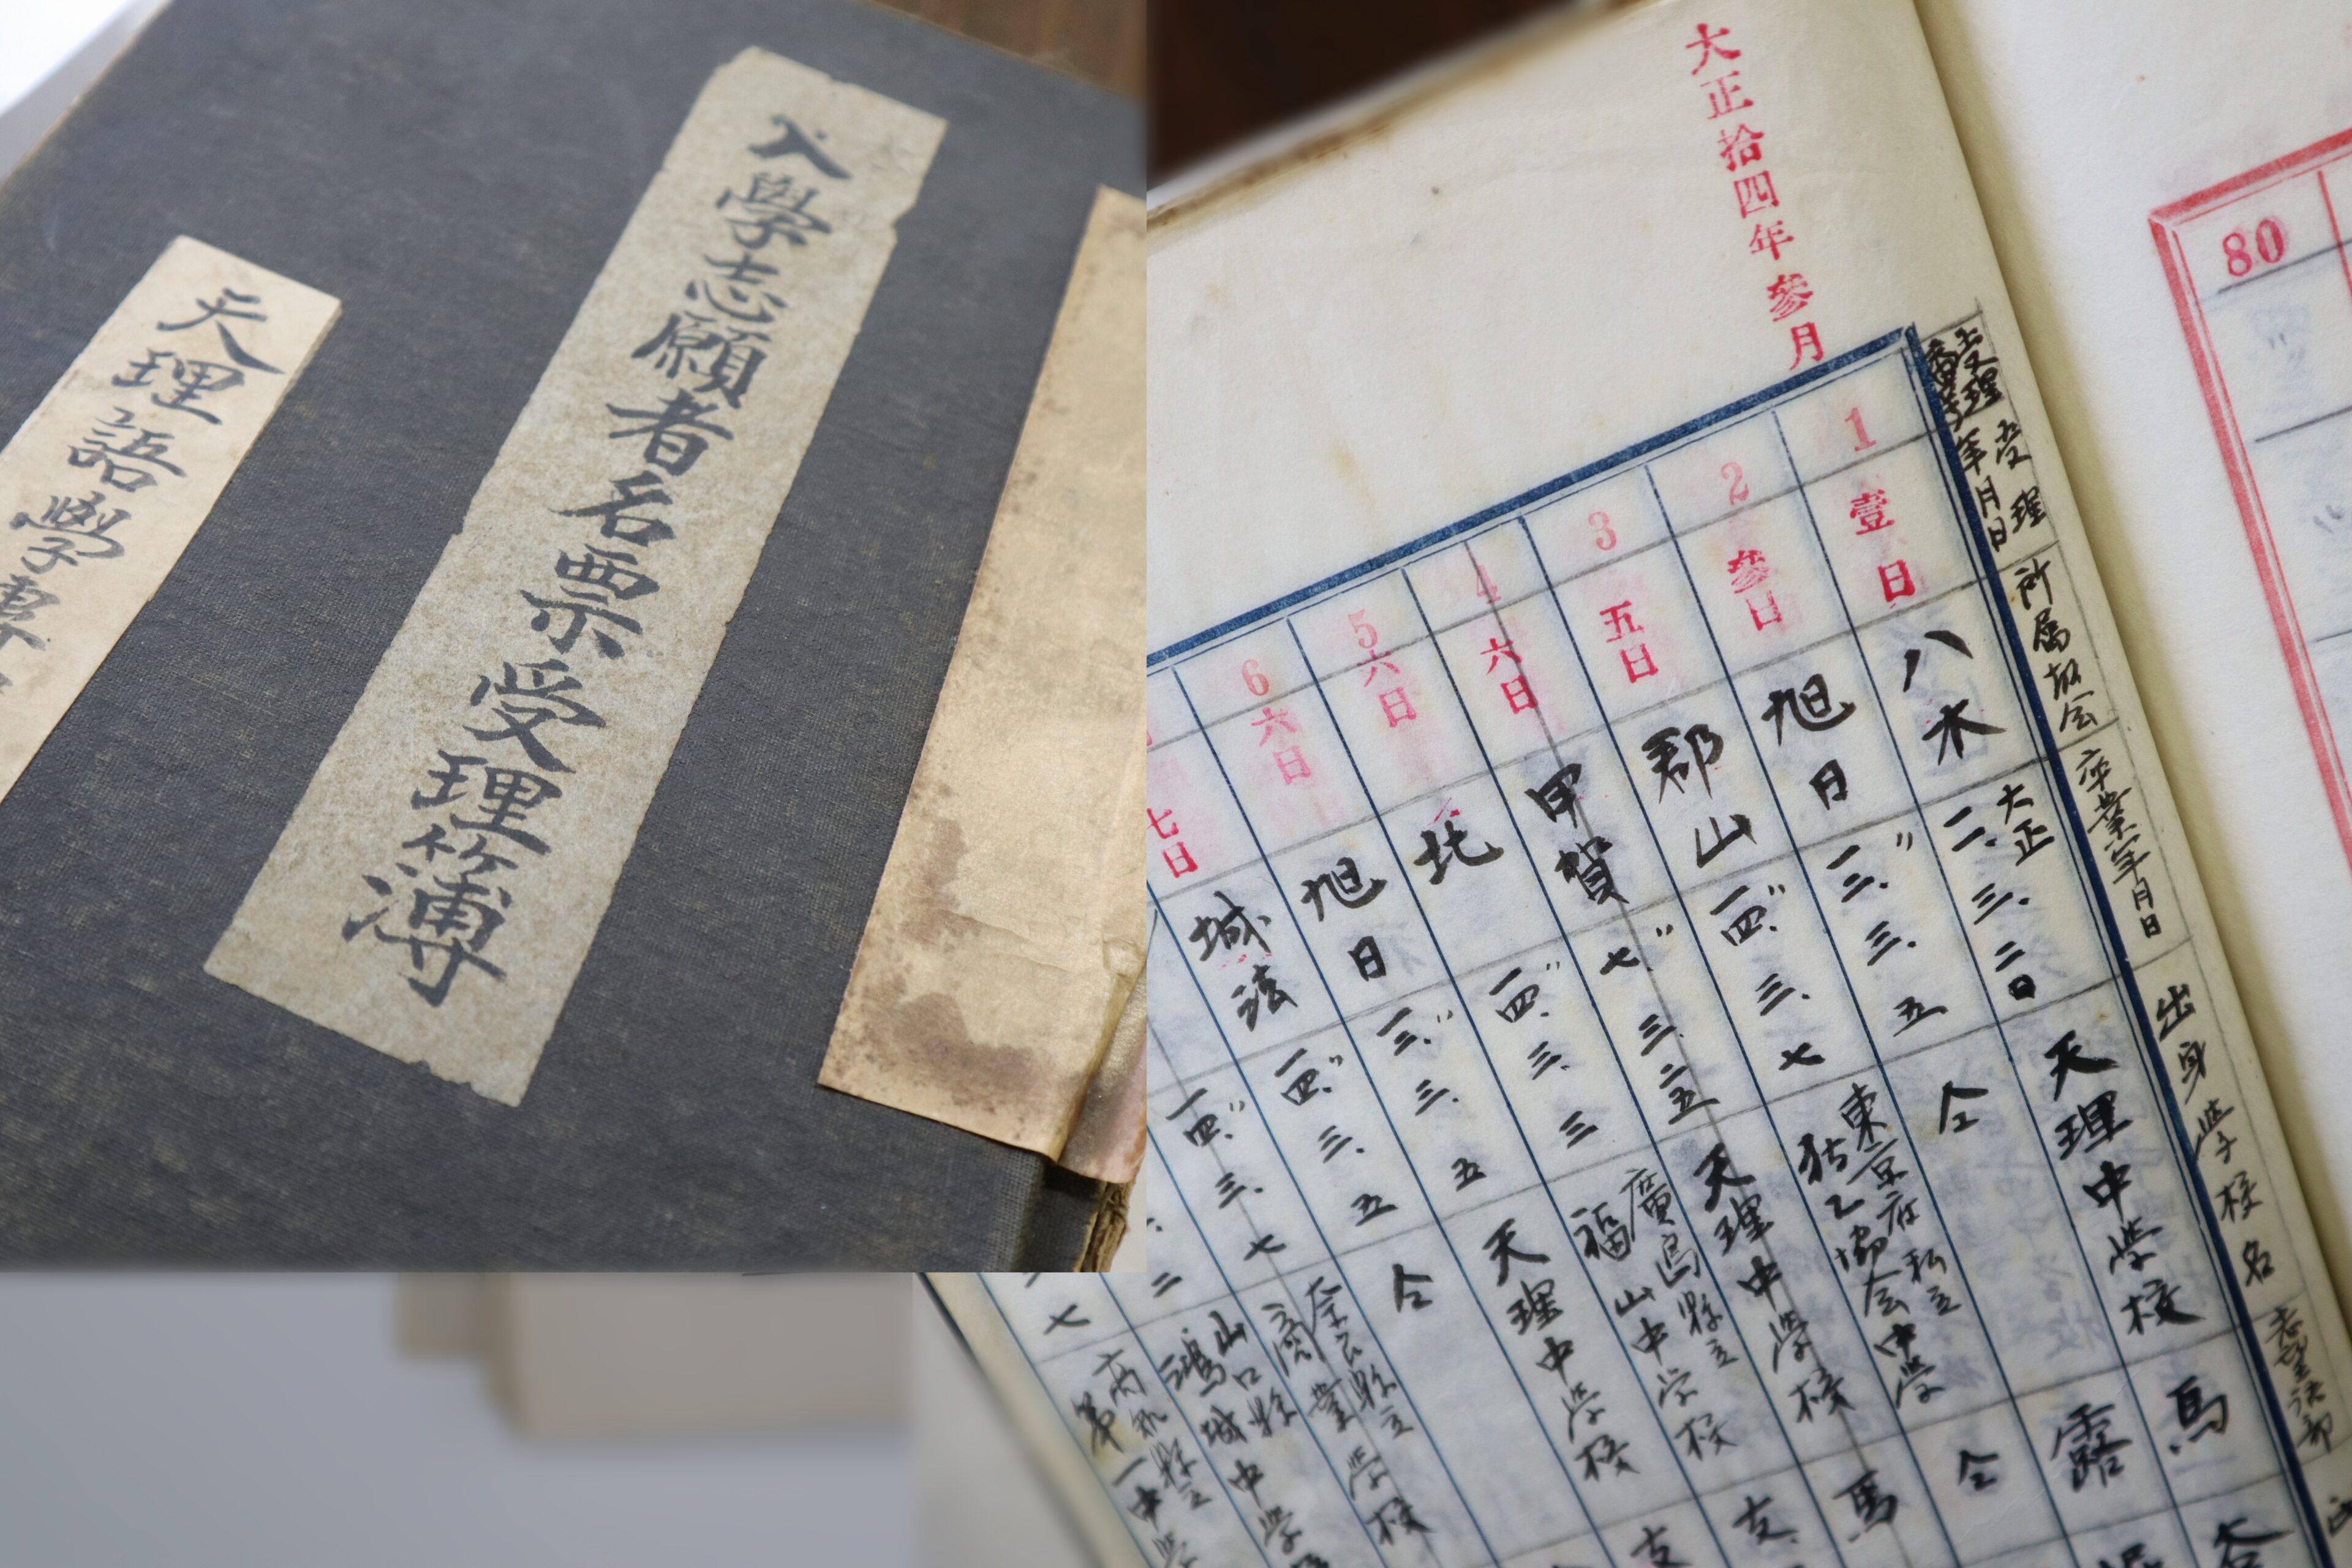 入學志願者名票受理簿
天理語學專
大正拾四年參月
受理番号
受理年月日
所属教会
卒業年月日
出身学校名
志望語部
1 壹日 八木 大正二.三.二〇 天理中學校 馬
2 參日 旭日 〃三.三.五 仝 露
3 五日 郡山 〃一四.三.七 東京府私立独乙協会中学 仝
4 六日 甲賀 〃七.三.二五 天理中學校 馬
5 六日 北 〃一四.三.三 廣島縣立福山中学校 支
6 六日 旭日 〃三.三.五 天理中学校 支
七日 城法 〃一四.三.五 仝
〃一四.三.七 奈良縣立商業学校
二 山口縣 鴻城中学
七 高知縣立第一中学
80